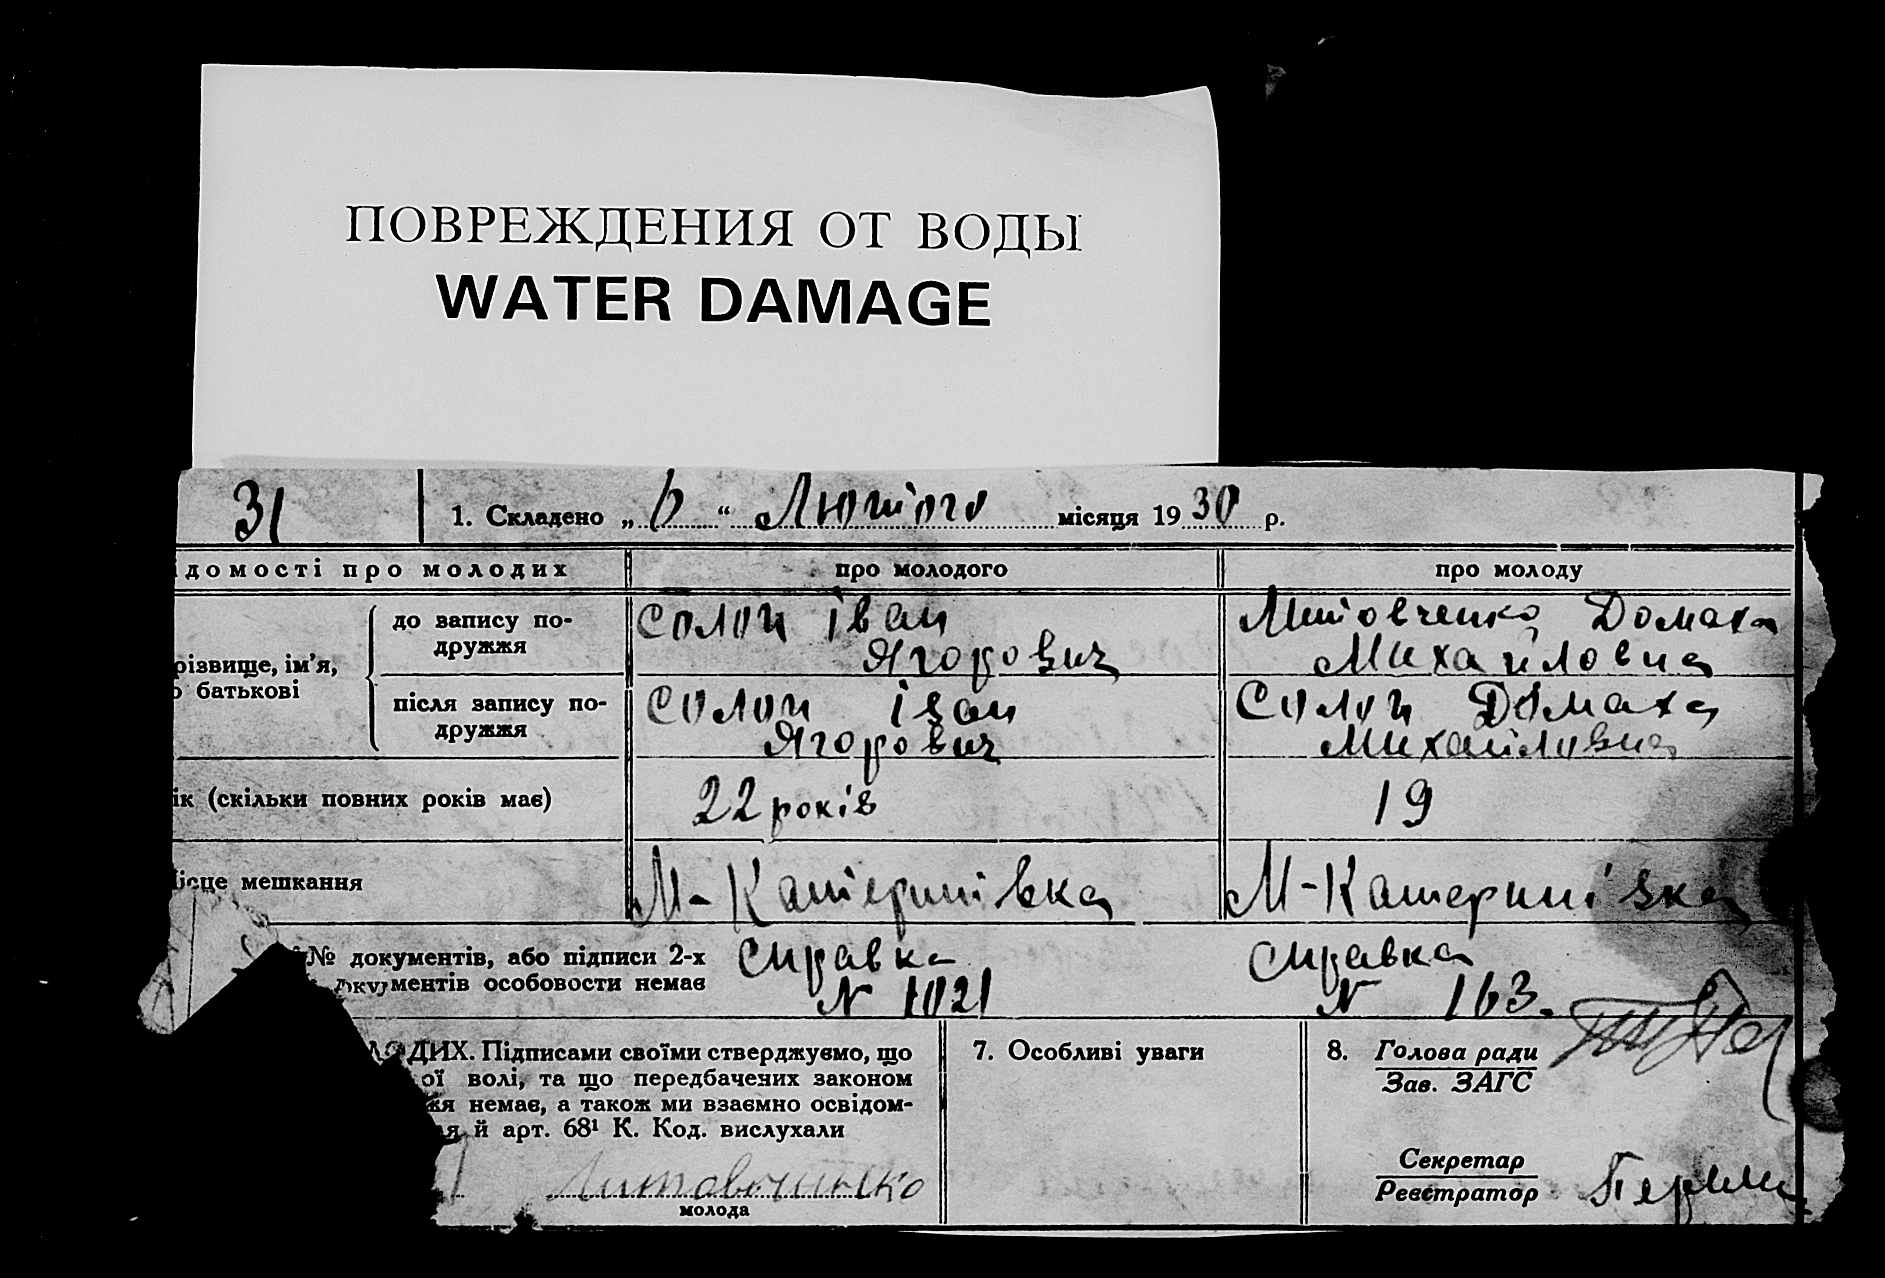 ПОВРЕЖДЕНИЯ ОТ ВОДЫ
WATER DAMAGE
31 1. Складено „6“ Лютого місяця 1930 р.
ідомості про молодих про молодого про молоду
до запису по-
дружжя
Солоп Іван
Ягорович
Литовченко Домаха
Михайловна
різвище, ім’я,
о батькові
після запису по-
дружжя
Солоп Іван
Ягорович
Солоп Домаха
Михайловна
ік (скільки повних років має) 22 років 19
ісце мешкання М-Катеринівка М-Катеринівка
№ документів, або підписи 2-х
документів особовости немає
справка
N 1021
справка
N 163.
ЛОДИХ. Підписами своїми стверджуємо, що
ої волі, та що передбачених законом
жя немає, а також ми взаємно освідом-
ля й арт. 68¹ К. Код. вислухали
Литовченко
молода
7. Особливі уваги
8. Голова ради
Зав. ЗАГС
Секретар
Реєстратор